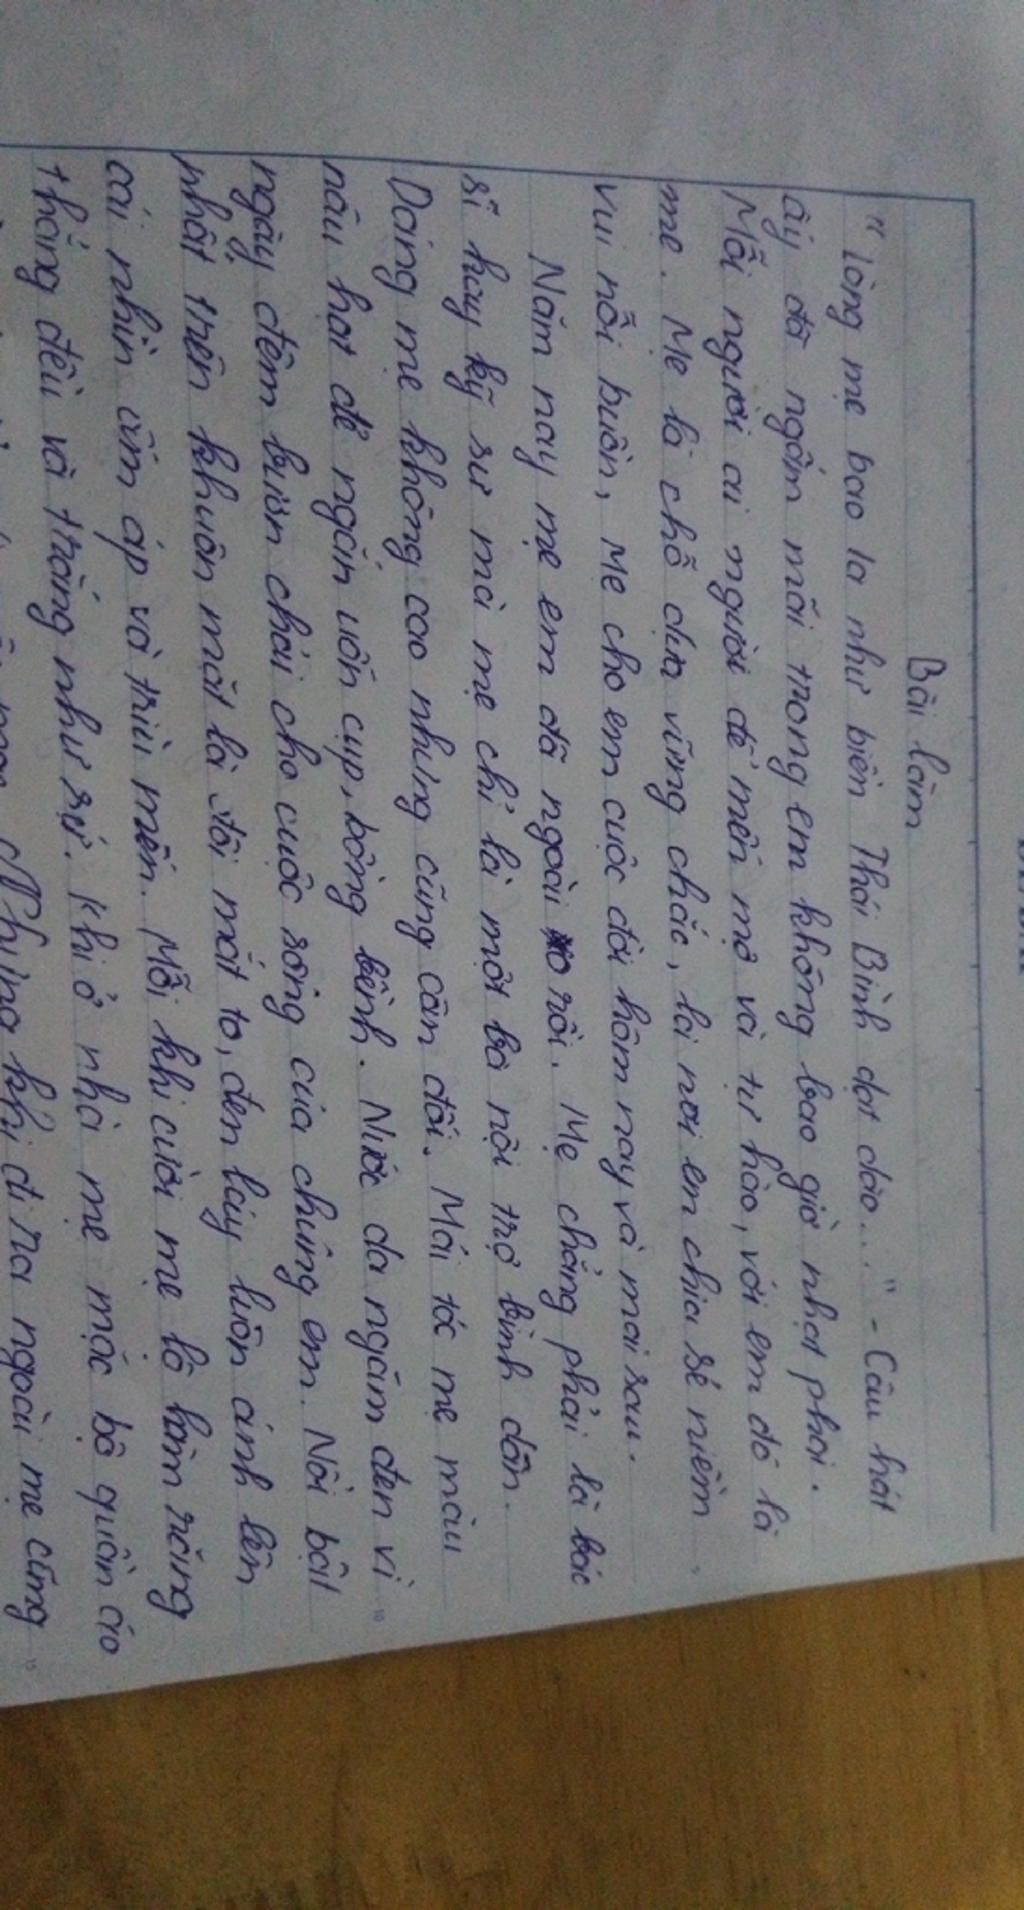 Bài làm
"Lòng mẹ bao la như biển Thái Bình dạt dào..." - Câu hát
ấy đã ngấm mãi trong em không bao giờ nhạt phai.
Mỗi người ai người để mến mộ và tự hào, với em đó là
mẹ. Mẹ là chỗ dựa vững chắc, là nơi em chia sẻ niềm
vui nỗi buồn, Mẹ cho em cuộc đời hôm nay và mai sau.
Năm nay mẹ em đã ngoài rồi. Mẹ chẳng phải là bác
sĩ hay kỹ sư mà mẹ chỉ là một bà nội trợ bình dân.
Dáng mẹ không cao nhưng cũng cân đối. Mái tóc mẹ màu
nâu hạt dẻ ngắn uốn cụp, bồng bềnh. Nước da ngăm đen vì
ngày đêm bươn chải cho cuộc sống của chúng em. Nổi bật
nhất trên khuôn mặt là đôi mắt to, đen láy luôn ánh lên
cái nhìn ấm áp và trìu mến. Mỗi khi cười mẹ lộ hàm răng
thẳng đều và trắng như sứ. Khi ở nhà mẹ mặc bộ quần áo
Nhưng khi đi ra ngoài mẹ cũng